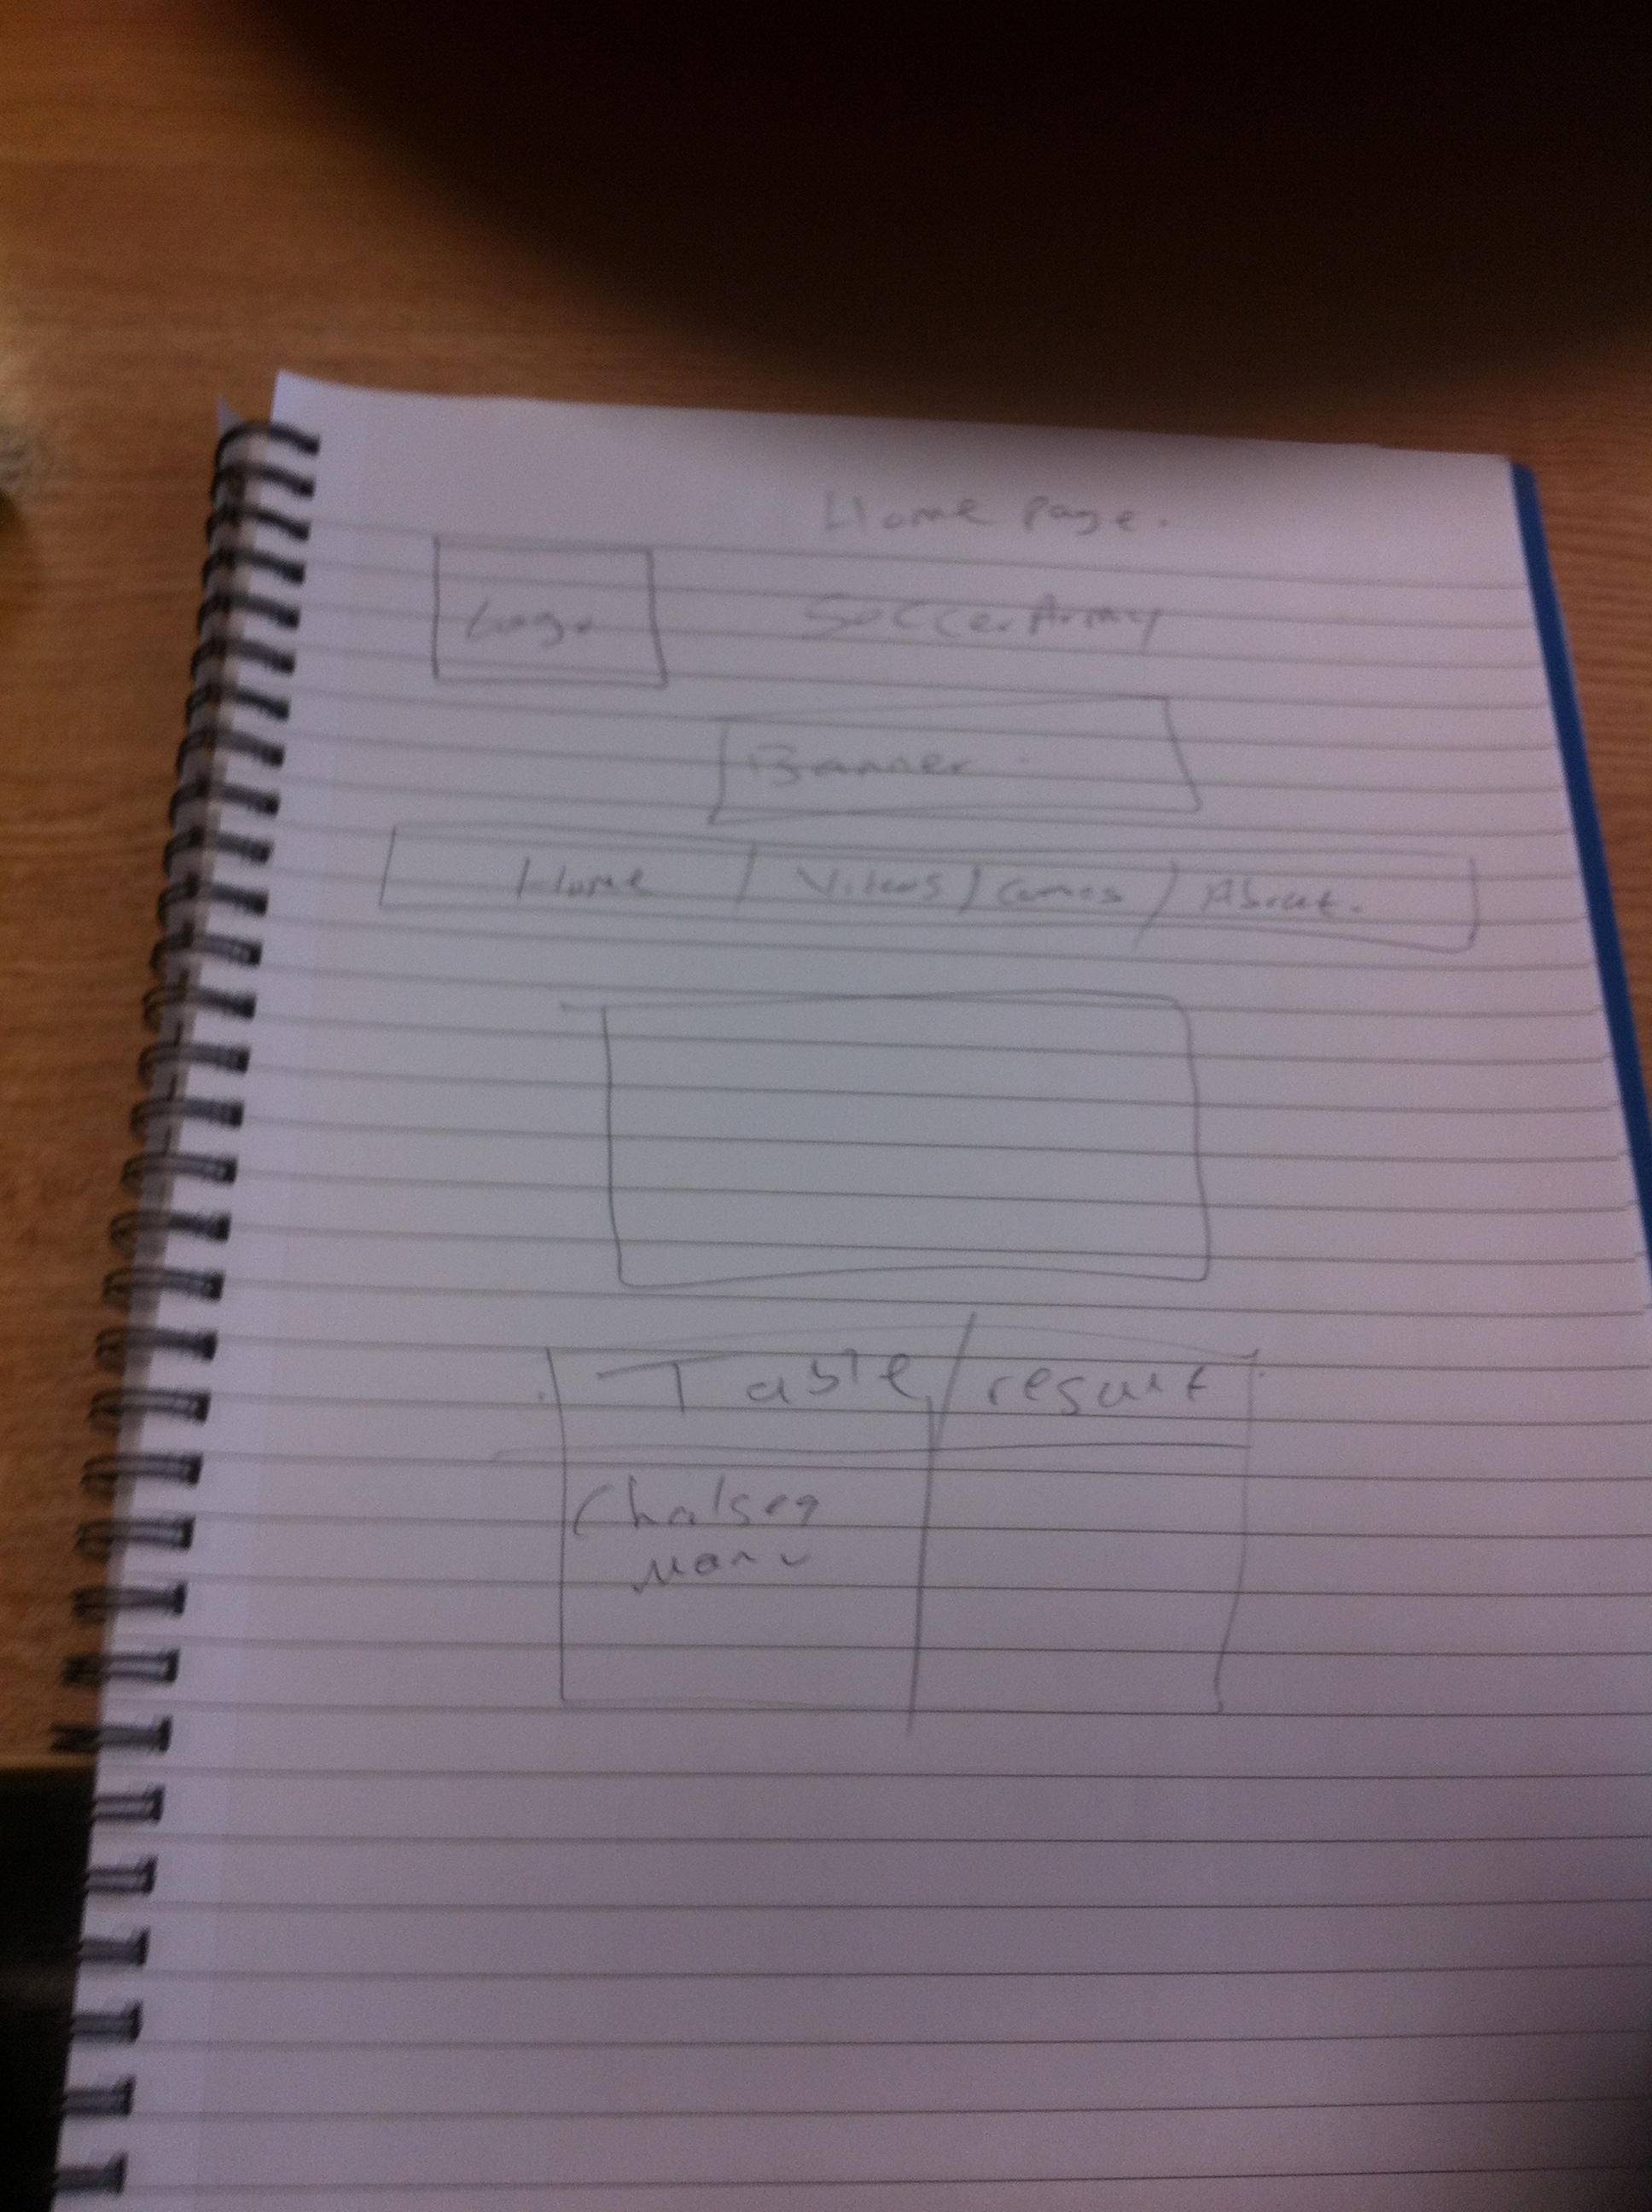 Home Page.
Logo SoccerArmy
Banner
Home / Videos / Games / About.
Table / result
Chalsea
Manu